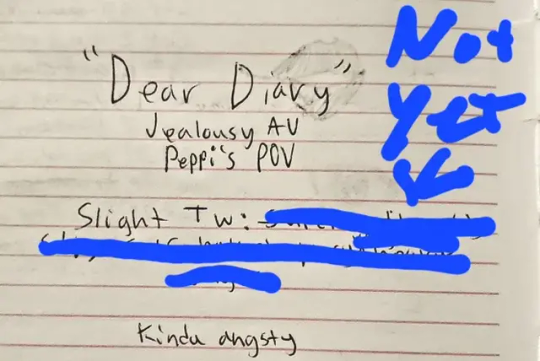 "Dear Diary"
Jealousy AU
Peppi's POV
Not
Yet
Slight TW:
Kinda angsty